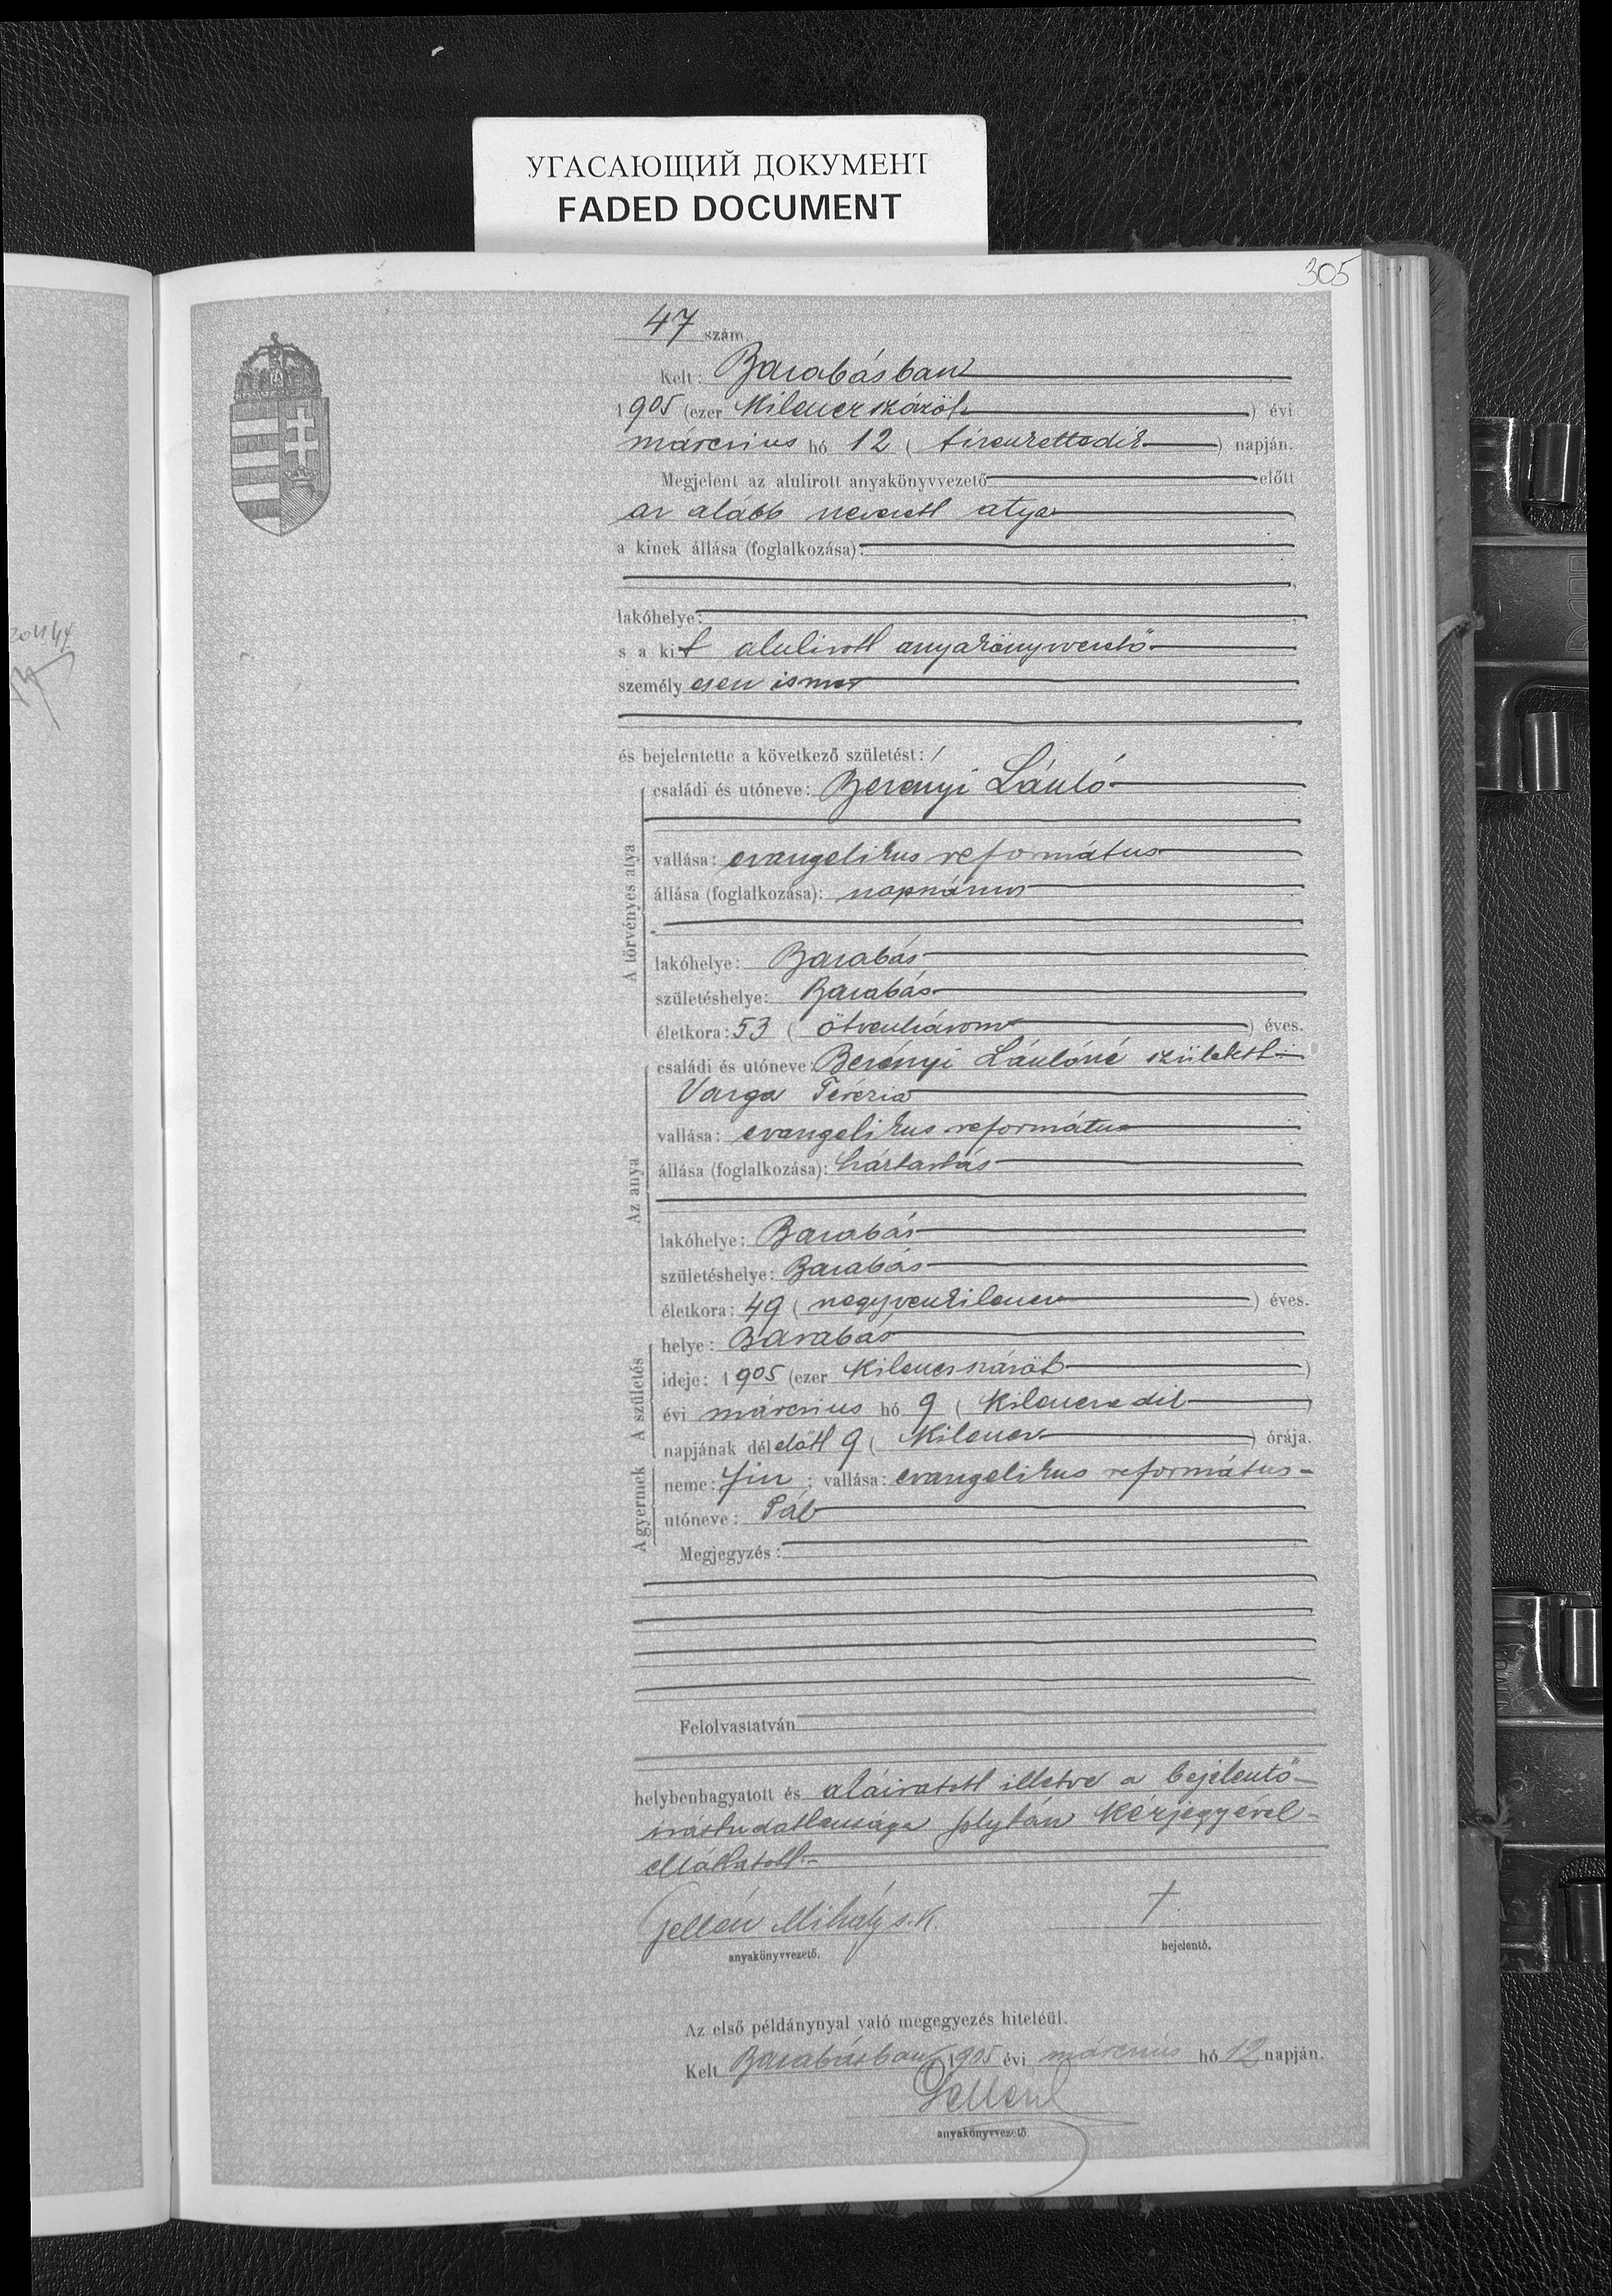 УГАСАЮЩИЙ ДОКУМЕНТ
FADED DOCUMENT
305
47 szám
Kelt: Barabásban
1905 (ezer kilenczszázöt) évi
márczius hó 12 (tizenkettedik) napján.
Megjelent az alulirott anyakönyvvezető előtt
az alább nevezett atya
a kinek állása (foglalkozása):
lakóhelye:
s a kit alulirott anyakönyvvezető
személyesen ismer
és bejelentette a következő születést:
A törvényes atya
családi és utóneve: Berenyi László
vallása: evangelikus református
állása (foglalkozása): napszámos
lakóhelye: Barabás
születéshelye: Barabás
életkora: 53 (ötvenhárom) éves.
Az anya
családi és utóneve: Berényi Lászlóné született
Varga Terézia
vallása: evangelikus református
állása (foglalkozása): háztartás
lakóhelye: Barabás
születéshelye: Barabás
életkora: 49 (negyvenkilencz) éves.
A születés
helye: Barabás
ideje: 1905 (ezer kilenczszázöt)
évi márczius hó 9 (kilenczedik)
napjának délelőtt 9 (kilencz) órája.
A gyermek
neme: fiu; vallása: evangelikus református
utóneve: Pál
Megjegyzés:
Felolvastatván
helybenhagyatott és aláiratott illetve a bejelentő
irástudatlansága folytán kézjegyével
elláttatott.
Gellén Mihály s. k.
anyakönyvvezető.
+
bejelentő.
Az első példánynyal való megegyezés hiteléül.
Kelt Barabásban 1905 évi márczius hó 12 napján.
anyakönyvvezető